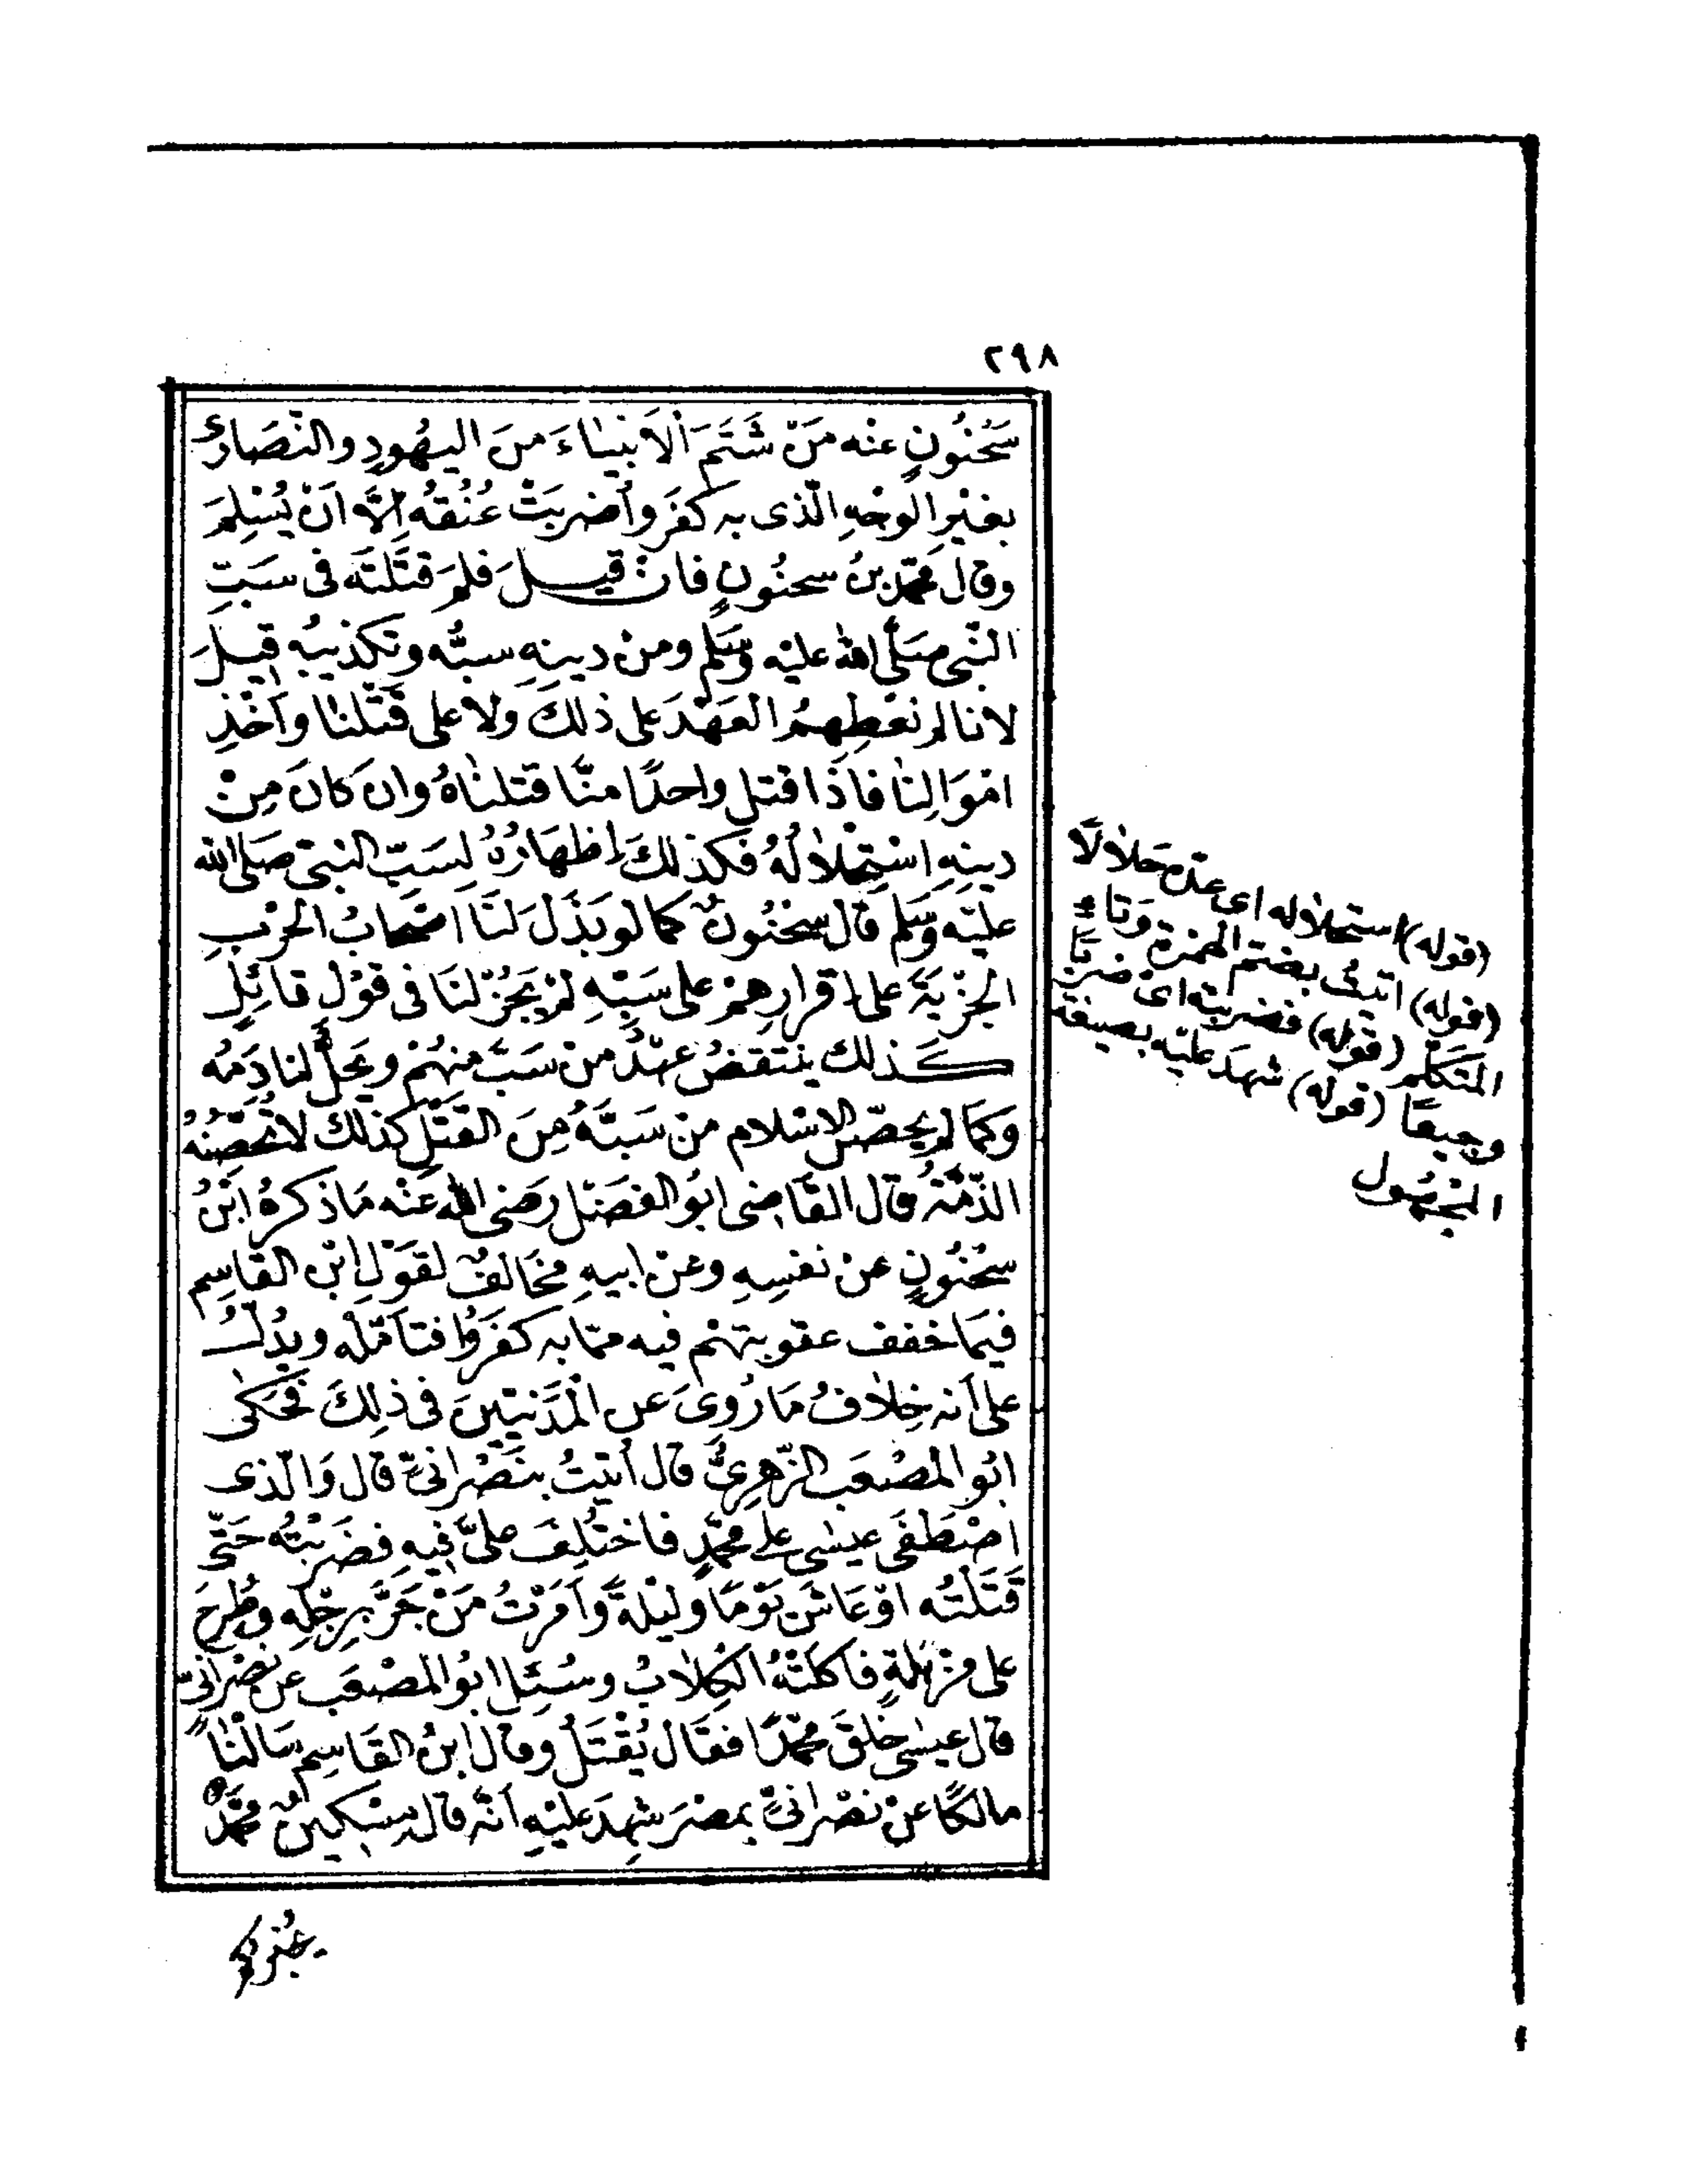 ٢٩٨
سَحْنُونٍ عنه مَنْ شَتَمَ الأَنْبِيٰاءَ مِنَ اليهُودِ والنَّصَارٰى
بغَيْرِ الوجْهِ الّذى به كَفَرَ وا ضُرِبَتْ عُنُقُهُ اِلّا اَنْ يُسْلِمَ
وقال محمّد بنُ سحنُونٍ فان قيلَ فلِمَ قَتَلْتَه فى سَبِّ
النّبى صَلَّى الله عليْه وسَلّم ومنْ دينِهِ سبُّه وتكْذيبُه قيلَ
لانا لم نُعْطِهِمُ العَهْدَ على ذلكَ ولا على قَتْلِنٰا واَخْذِ
امْوَالِنٰا فاذَا قتل واحدًا منّا قتلنٰاهُ وان كانَ مِنْ
دينِهِ اسْتِحْلاٰلُهُ فكذلكَ اِظهَارُهُ لِسَبِّ النبىّ صَلى الله
عليْه وسَلم قال سحْنُونٌ كما لو بَذَلَ لَنَا اصْحَابُ الحرْبِ
الجزْيَةَ على اقرارِهمْ على سَبّهِ لمْ يَجُزْ لنَا فى قوْلِ قائِلٍ
كَذلك ينتقضُ عهْدُ من سَبَّ منهُمْ ويَحِلُّ لنا دَمُه
وَكمَا لم يُحصّنِ الاِسْلام منْ سَبَّهُ مِنَ القَتْلِ كذلك لا تُحَصِّنُهُ
الذّمّةُ قال القَاضِى ابُو الفضْل رَضى الله عَنْه مَا ذكرهُ ابْنُ
سحْنُونٍ عن نفسِهِ وعنْ ابيهِ مخَالفٌ لقوْلِ ابْن القاسِم
فيمَا خفف عقوبتهُمْ فيه ممّا به كفَرُوا فتأمّلْه ويدُلُّ
على اَنه خِلاٰفُ مَا رُوِىَ عن المَدَنيّينَ فى ذلِكَ فحَكٰى
ابُو المُصْعَب الزّهرىُّ قال أتيتُ بنَصْرانىّ قال وَالّذى
اصْطَفَى عيسٰى على محمّدٍ فاختُلِفَ علىَّ فيهِ فضَرَبْتُه حَتّٰى
قَتَلْتُه اوْ عَاشَ يَوْمًا وليْلةً وأمَرْتُ مَنْ جَرَّ بِرِجْلِهِ وطُرِحَ
على مزْبَلةٍ فاكلتْهُ الكِلاٰبُ وسُئِلَ ابُو المصْعَب عن نصْرانىٍّ
قال عيسٰى خلقَ محمّدًا فقَال يُقْتَلُ وقال ابنُ القَاسِم سَألْنٰا
مالكًا عنْ نصْرانىّ بمصْرَ شهِدَ عليْهِ اَنّه قال مِسْكينٌ محمّدٌ
يُخْبِركُم
(قوله) استحلاله اى عدّه حَلاٰلًا
(قوله) اتيتُ بضمّ الهمزة وتاء
المتكلّم (قوله) فضربته اى ضربًا
وجيعًا (قوله) شهدَ عليْه بصيغة
المجهُول